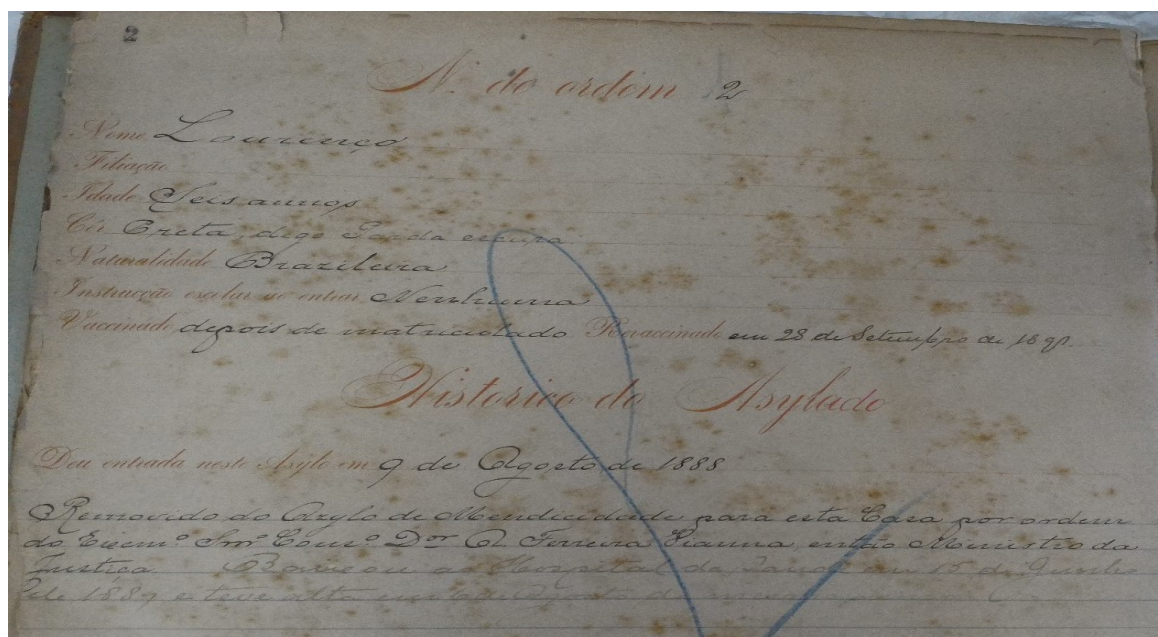 2
N. de ordem 2
Nome Lourenço
Filiação
Idade Seis annos
Côr Preta, digo Parda escura
Naturalidade Brazileira
Instrucção escolar ao entrar Nenhuma
Vaccinado depois de matriculado Revaccinado em 28 de Setembro de 1891.
Historico do Asylado
Deu entrada neste Asylo em 9 de Agosto de 1888
Removido do Azylo de Mendicidade para esta Casa por ordem
do Excmº Snrº Consº Dor A Ferreira Vianna, então Ministro da
Justiça. Baixou ao Hospital da Saude em 15 de Junho
de 1889 e teve alta em Agosto do mesmo